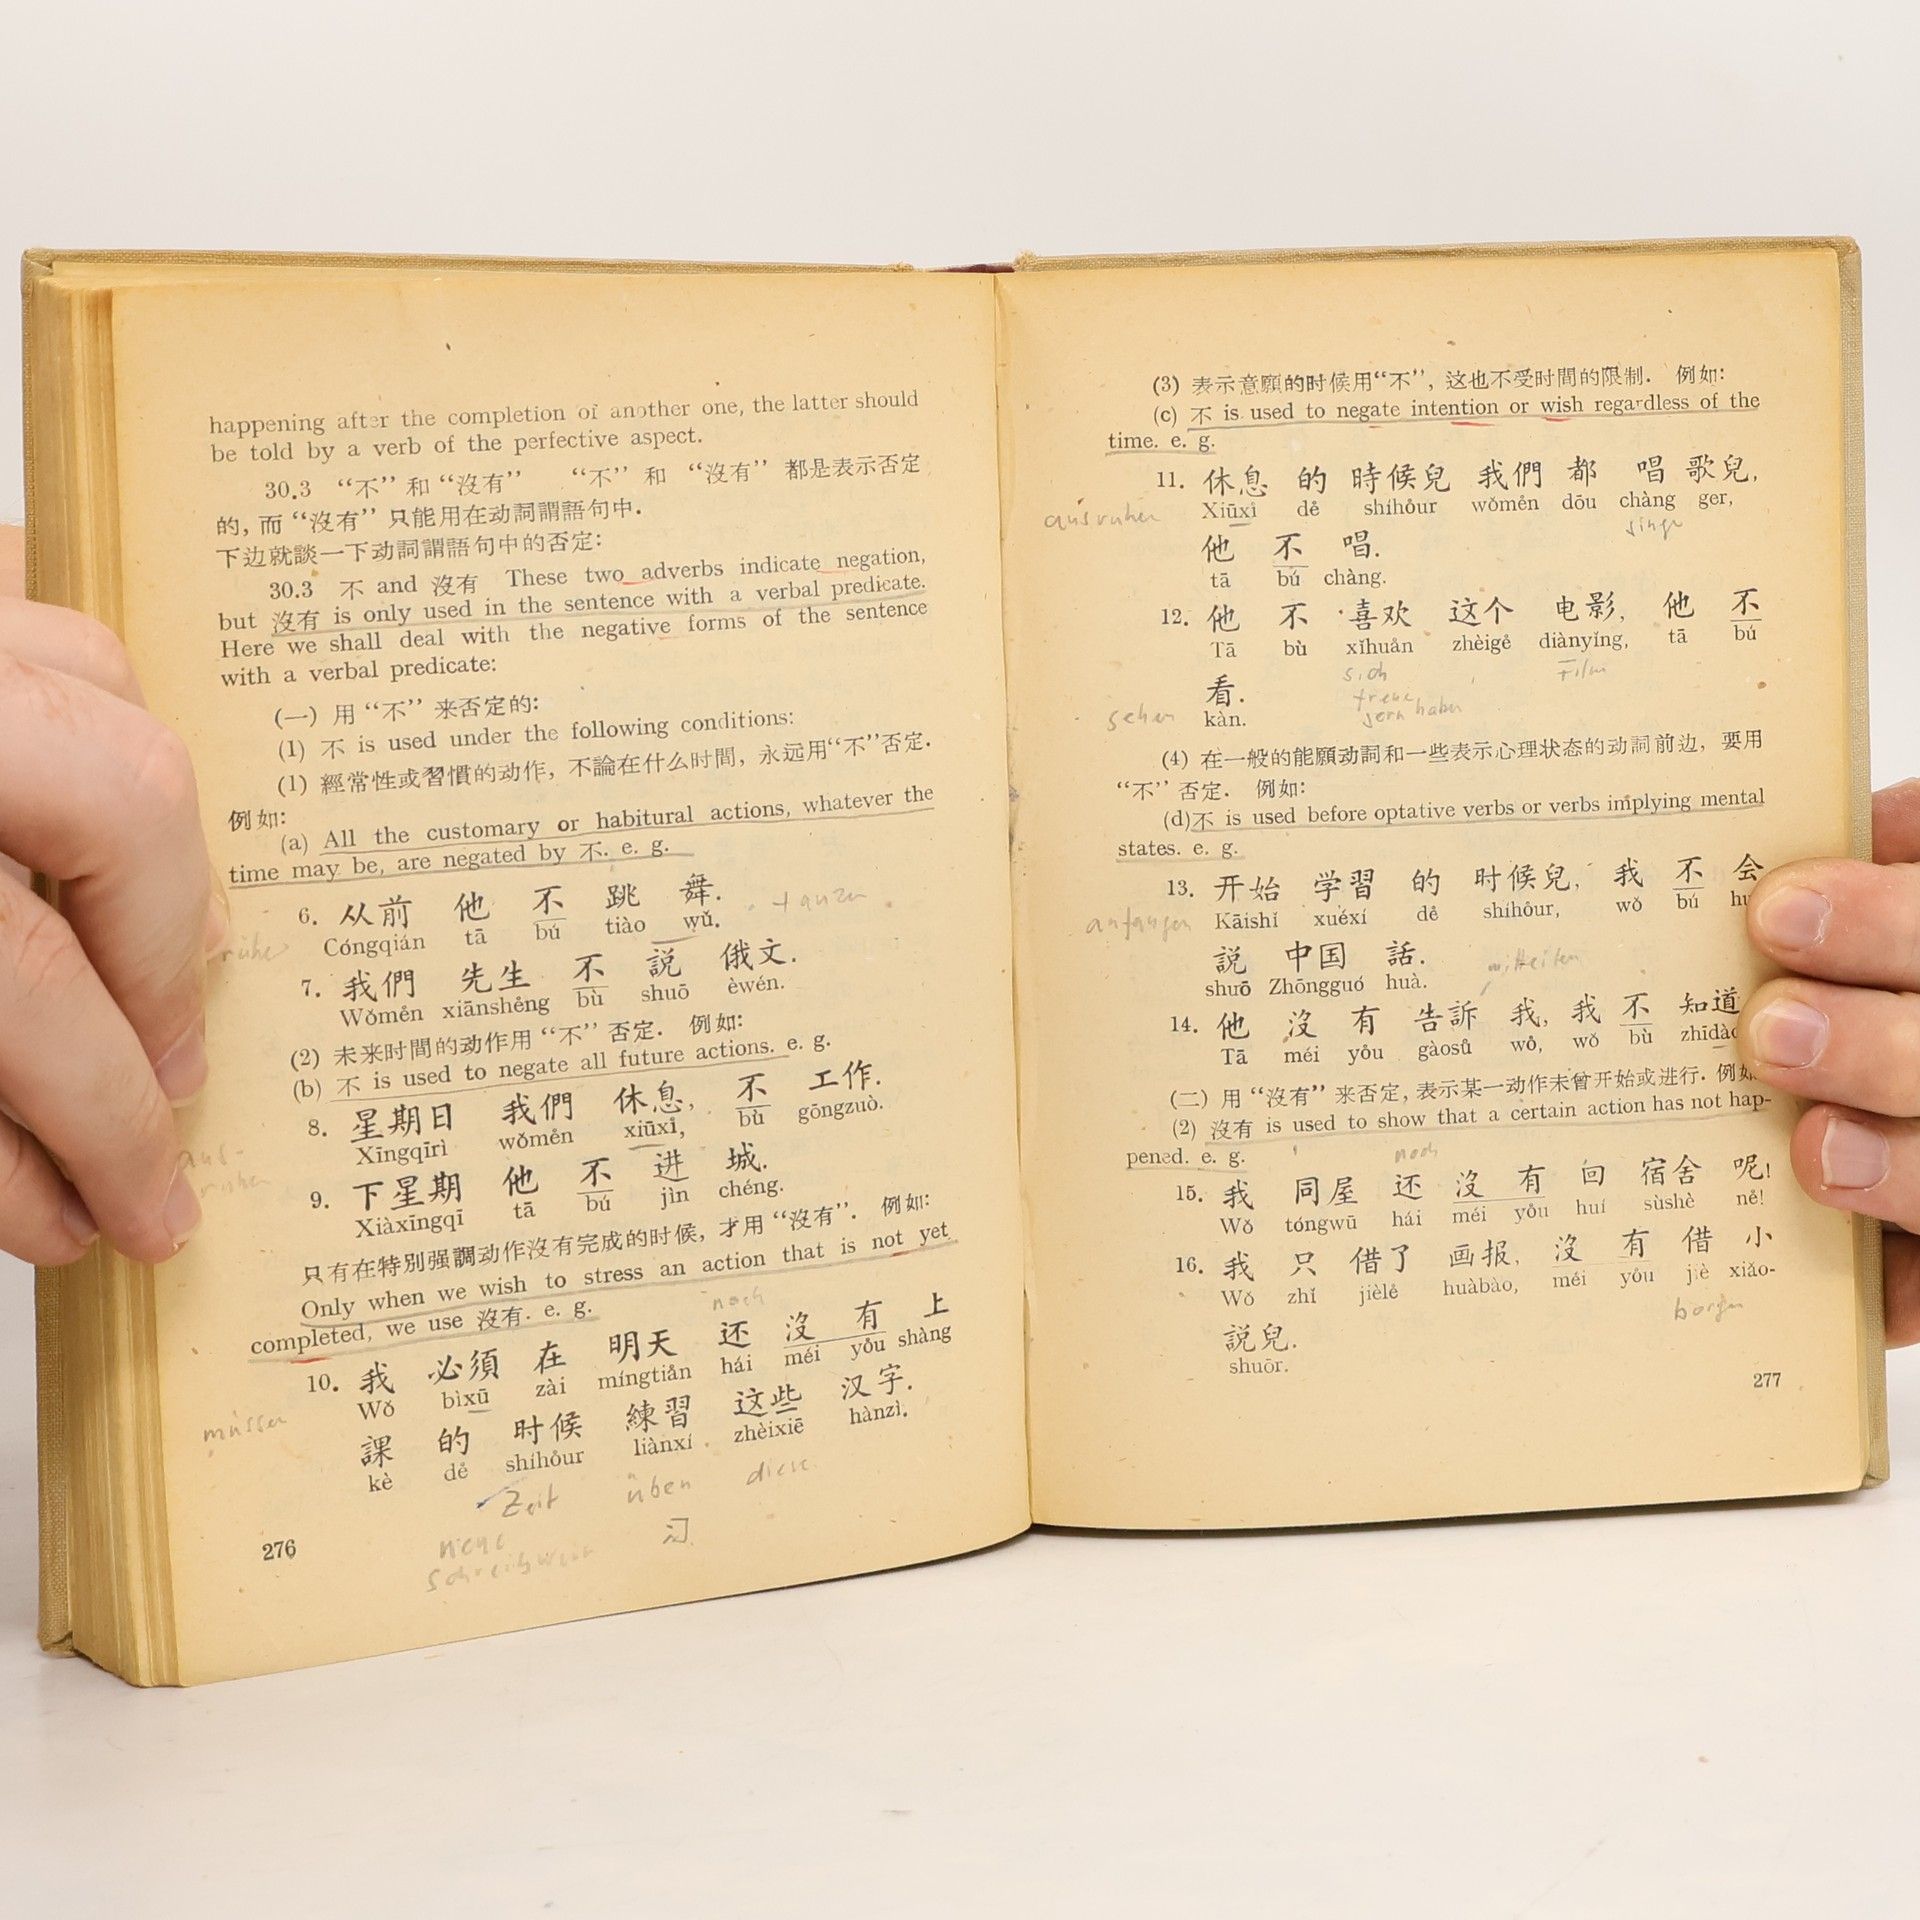 happening after the completion of another one, the latter should
be told by a verb of the perfective aspect.
30.3 “不” 和 “沒有” “不” 和 “沒有” 都是表示否定
的, 而 “沒有” 只能用在动詞謂語句中.
下边就談一下动詞謂語句中的否定:
30.3 不 and 沒有 These two adverbs indicate negation,
but 沒有 is only used in the sentence with a verbal predicate.
Here we shall deal with the negative forms of the sentence
with a verbal predicate:
(一) 用 “不” 来否定的:
(1) 不 is used under the following conditions:
(1) 經常性或習慣的动作, 不論在什么时間, 永远用“不”否定.
例如:
(a) All the customary or habitural actions, whatever the
time may be, are negated by 不. e. g.
6. 从前 他 不 跳 舞. tanzen
Cóngqián tā bú tiào wǔ.
7. 我們 先生 不 說 俄文.
Wǒmen̊ xiānshen̊g bù shuō èwén.
(2) 未来时間的动作用 “不” 否定. 例如:
(b) 不 is used to negate all future actions. e. g.
8. 星期日 我們 休息, 不 工作.
Xīngqīrì wǒmen̊ xiūxi̊, bù gōngzuò.
aus-
ruhen
9. 下星期 他 不 进 城.
Xiàxīngqī tā bú jìn chéng.
只有在特別强調动作沒有完成的时候, 才用 “沒有”. 例如:
Only when we wish to stress an action that is not yet
completed, we use 沒有. e. g.
noch
10. 我 必須 在 明天 还 沒 有 上
Wǒ bìxū zài míngtiån hái méi yo̊u shàng
müssen
課 的 时候 練習 这些 汉字.
kè de̊ shího̊ur liànxí zhèixiē hànzì.
Zeit üben diese
neue 习
Schreibweise
276
(3) 表示意願的时候用“不”, 这也不受时間的限制. 例如:
(c) 不 is used to negate intention or wish regardless of the
time. e. g.
11. 休息 的 時候兒 我們 都 唱 歌兒,
ausruhen Xiūxi̊ de̊ shího̊ur wǒmen̊ dōu chàng ger,
他 不 唱.
tā bú chàng.
12. 他 不 喜欢 这个 电影, 他 不
Tā bù xǐhuån zhèige̊ diànyǐng, tā bú
sich Film
看.
sehen kàn.
freue
gern haben
(4) 在一般的能願动詞和一些表示心理状态的动詞前边, 要用
“不” 否定. 例如:
(d) 不 is used before optative verbs or verbs implying mental
states. e. g.
13. 开始 学習 的 时候兒, 我 不 会
anfangen Kāishǐ xuéxí de̊ shího̊ur, wǒ bú
說 中国 話. mitteilen
shuō Zhōngguó huà.
14. 他 沒 有 告訴 我, 我 不 知道
Tā méi yo̊u gàosů wo̊, wǒ bù
(二) 用 “沒有” 来否定, 表示某一动作未曾开始或进行. 例如
(2) 沒有 is used to show that a certain action has not hap-
pened. e. g.
noch
15. 我 同屋 还 沒 有 回 宿舍 呢!
Wǒ tóngwū hái méi yo̊u huí sùshè ne̊!
16. 我 只 借了 画报, 沒 有 借 小
Wǒ zhǐ jièle̊ huàbào, méi yo̊u jiè xiǎo-
borgen
說兒.
shuōr.
277